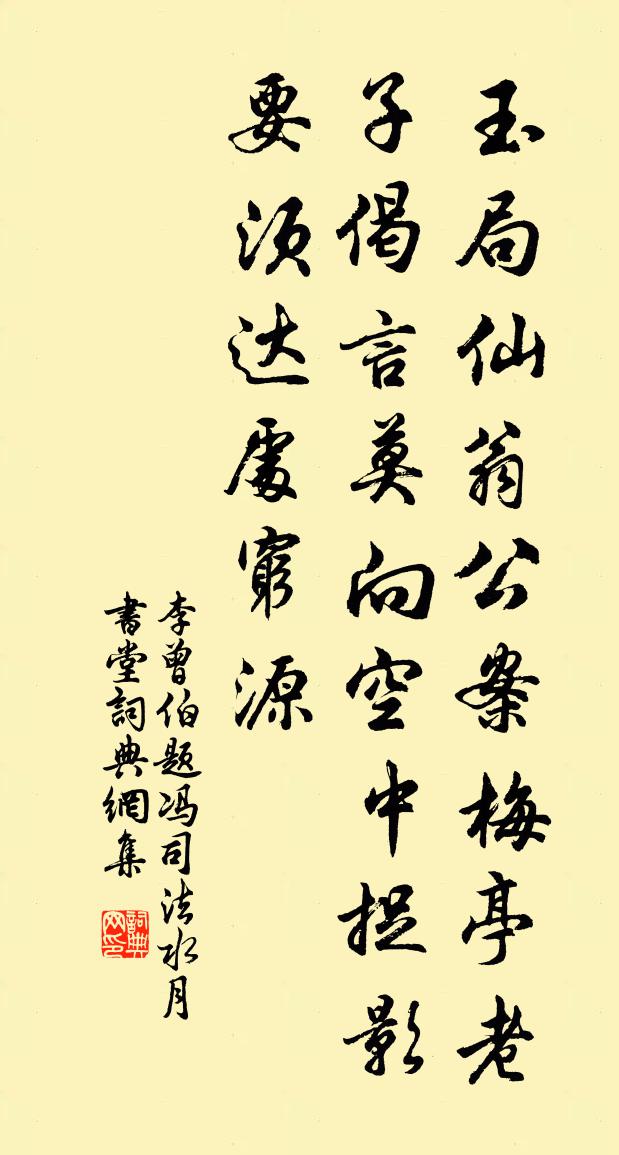 玉局仙翁公案梅亭老
子偈言莫向空中捉影
要须达處窮源
李曾伯题冯司法水月
書堂詞典網集
詞典
网印